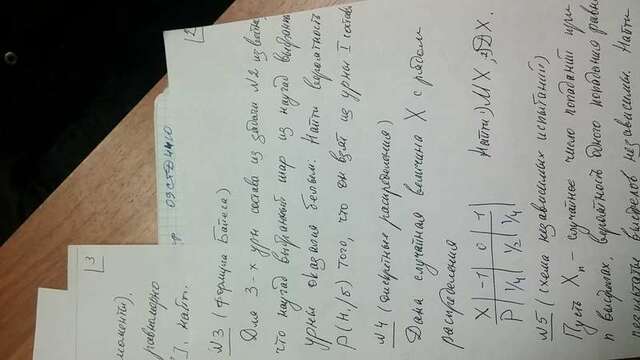 3
моменти),
равномерно
], найти.
09СТД4410
2
№3 (Формула Байеса)
Для 3-х урн состава из задачи №2 известно,
что наугад выбранный шар из наугад выбранной
урны оказался белым. Найти вероятность
P(H₁/б) того, что он взят из урны I состава
№4 (дискретные распределения)
Дана случайная величина X с рядом
распределения
X | -1 | 0 | 1
P | 1/4 | 1/2 | 1/4
Найти 1) MX, 2) DX.
№5 (схема независимых испытаний)
Пусть Xn – случайное число попаданий при
n выстрелах, вероятность одного попадания равна
результаты выстрелов независимы. Найти